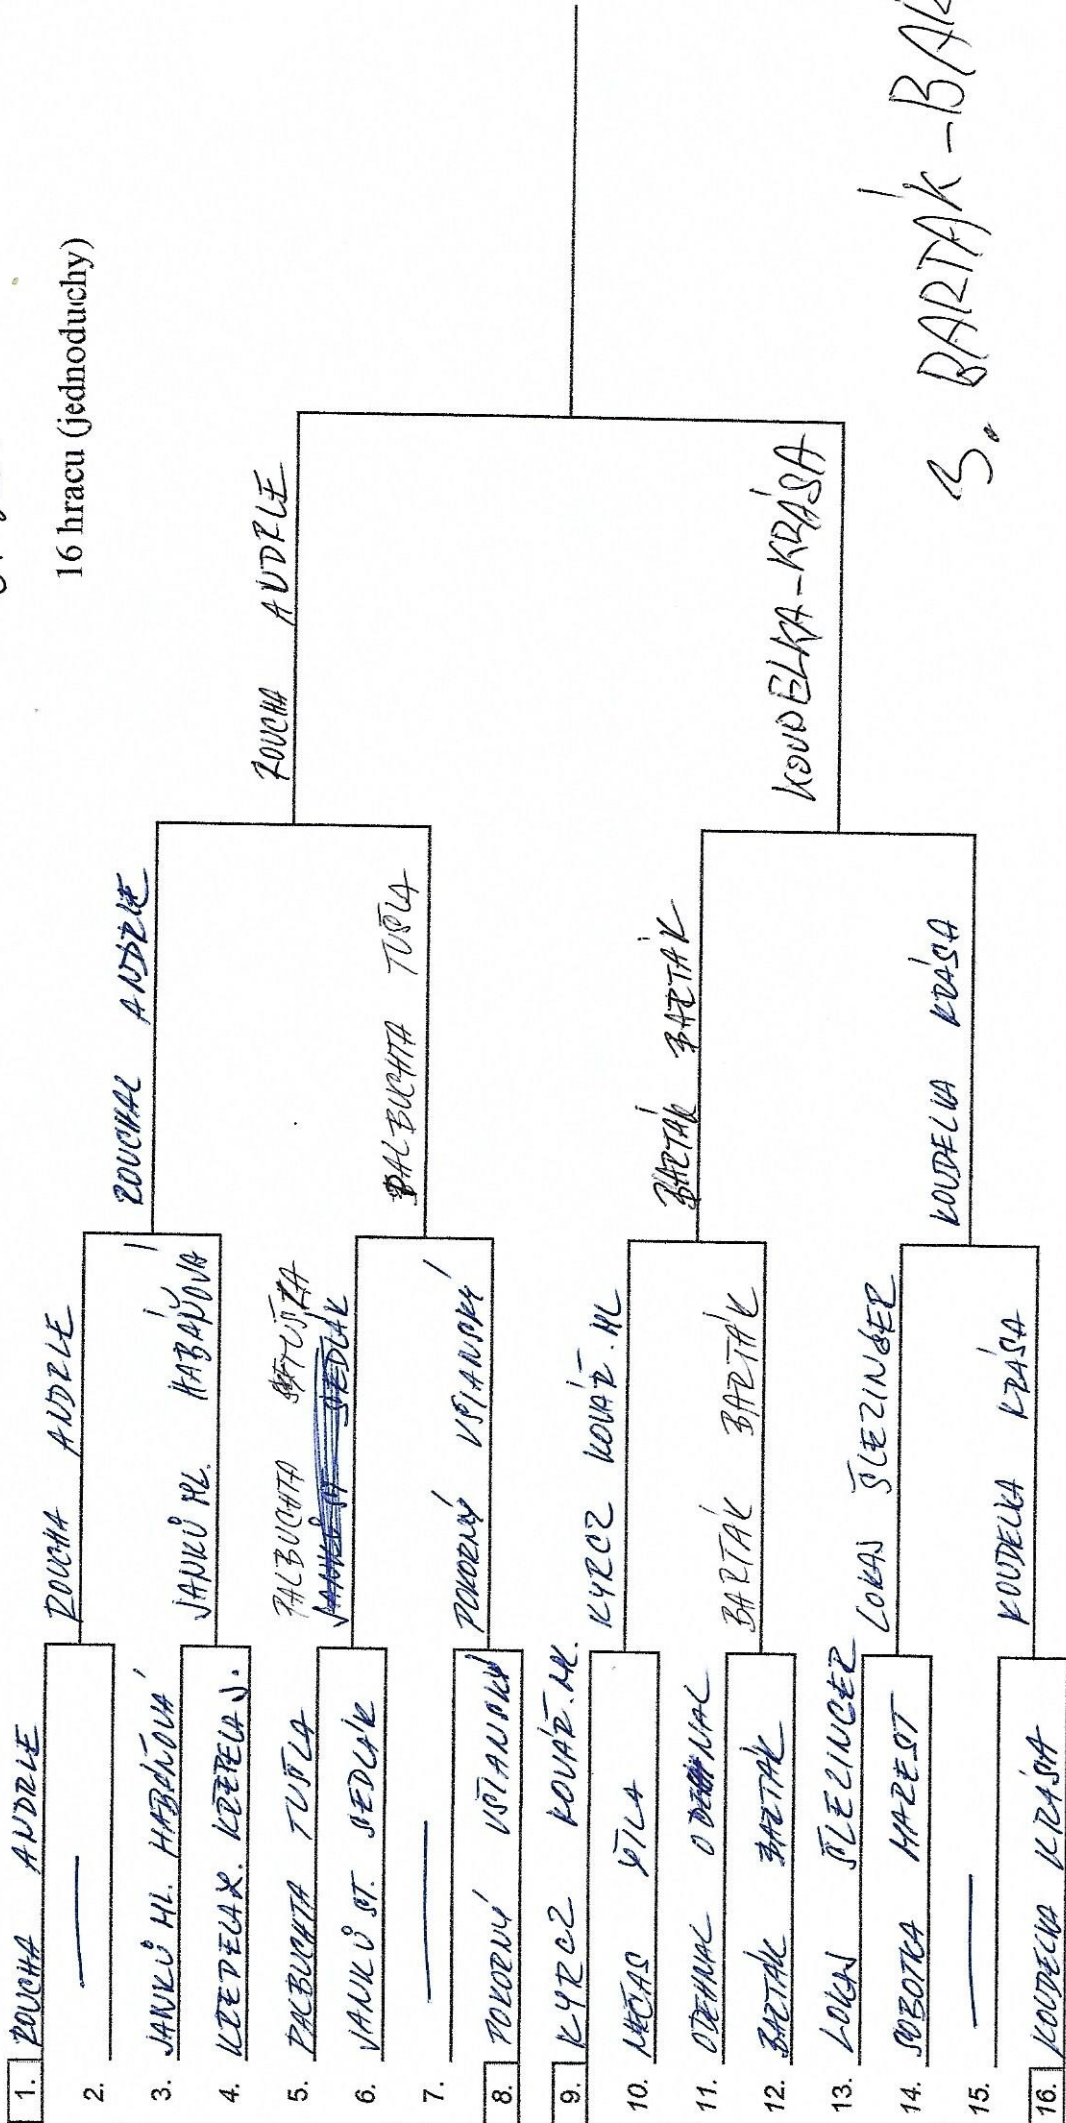 16 hracu (jednoduchy)
1. ZOUCHA ANDRLE
2.
3. JANKŮ ML. HABÁŇOVÁ
4.
5. PALBUCHTA TUŠLA
6. JANKŮ ST. SEDLÁK
7.
8. POKORNÝ VŠIANSKÝ
9. KYRCZ KOVÁŘ. ML.
10. NEČAS
11. ODEHNAL ODEHNAL
12. BARTÁK BARTÁK
13. LOKAJ ŠLEZINGER
14. SOBOTKA
15.
16. KOUDELKA KRÁSA
ZOUCHA ANDRLE
JANKŮ ML. HABÁŇOVÁ
PALBUCHTA TUŠLA
SEDLÁK
POKORNÝ VŠIANSKÝ
KYRCZ KOVÁŘ. ML
BARTÁK BARTÁK
LOKAJ ŠLEZINGER
KOUDELKA KRÁSA
ZOUCHAL ANDRLE
PALBUCHTA TUŠLA
BARTÁK BARTÁK
KOUDELKA KRÁSA
ZOUCHA ANDRLE
KOUDELKA-KRÁSA
3. BARTÁK-BAR